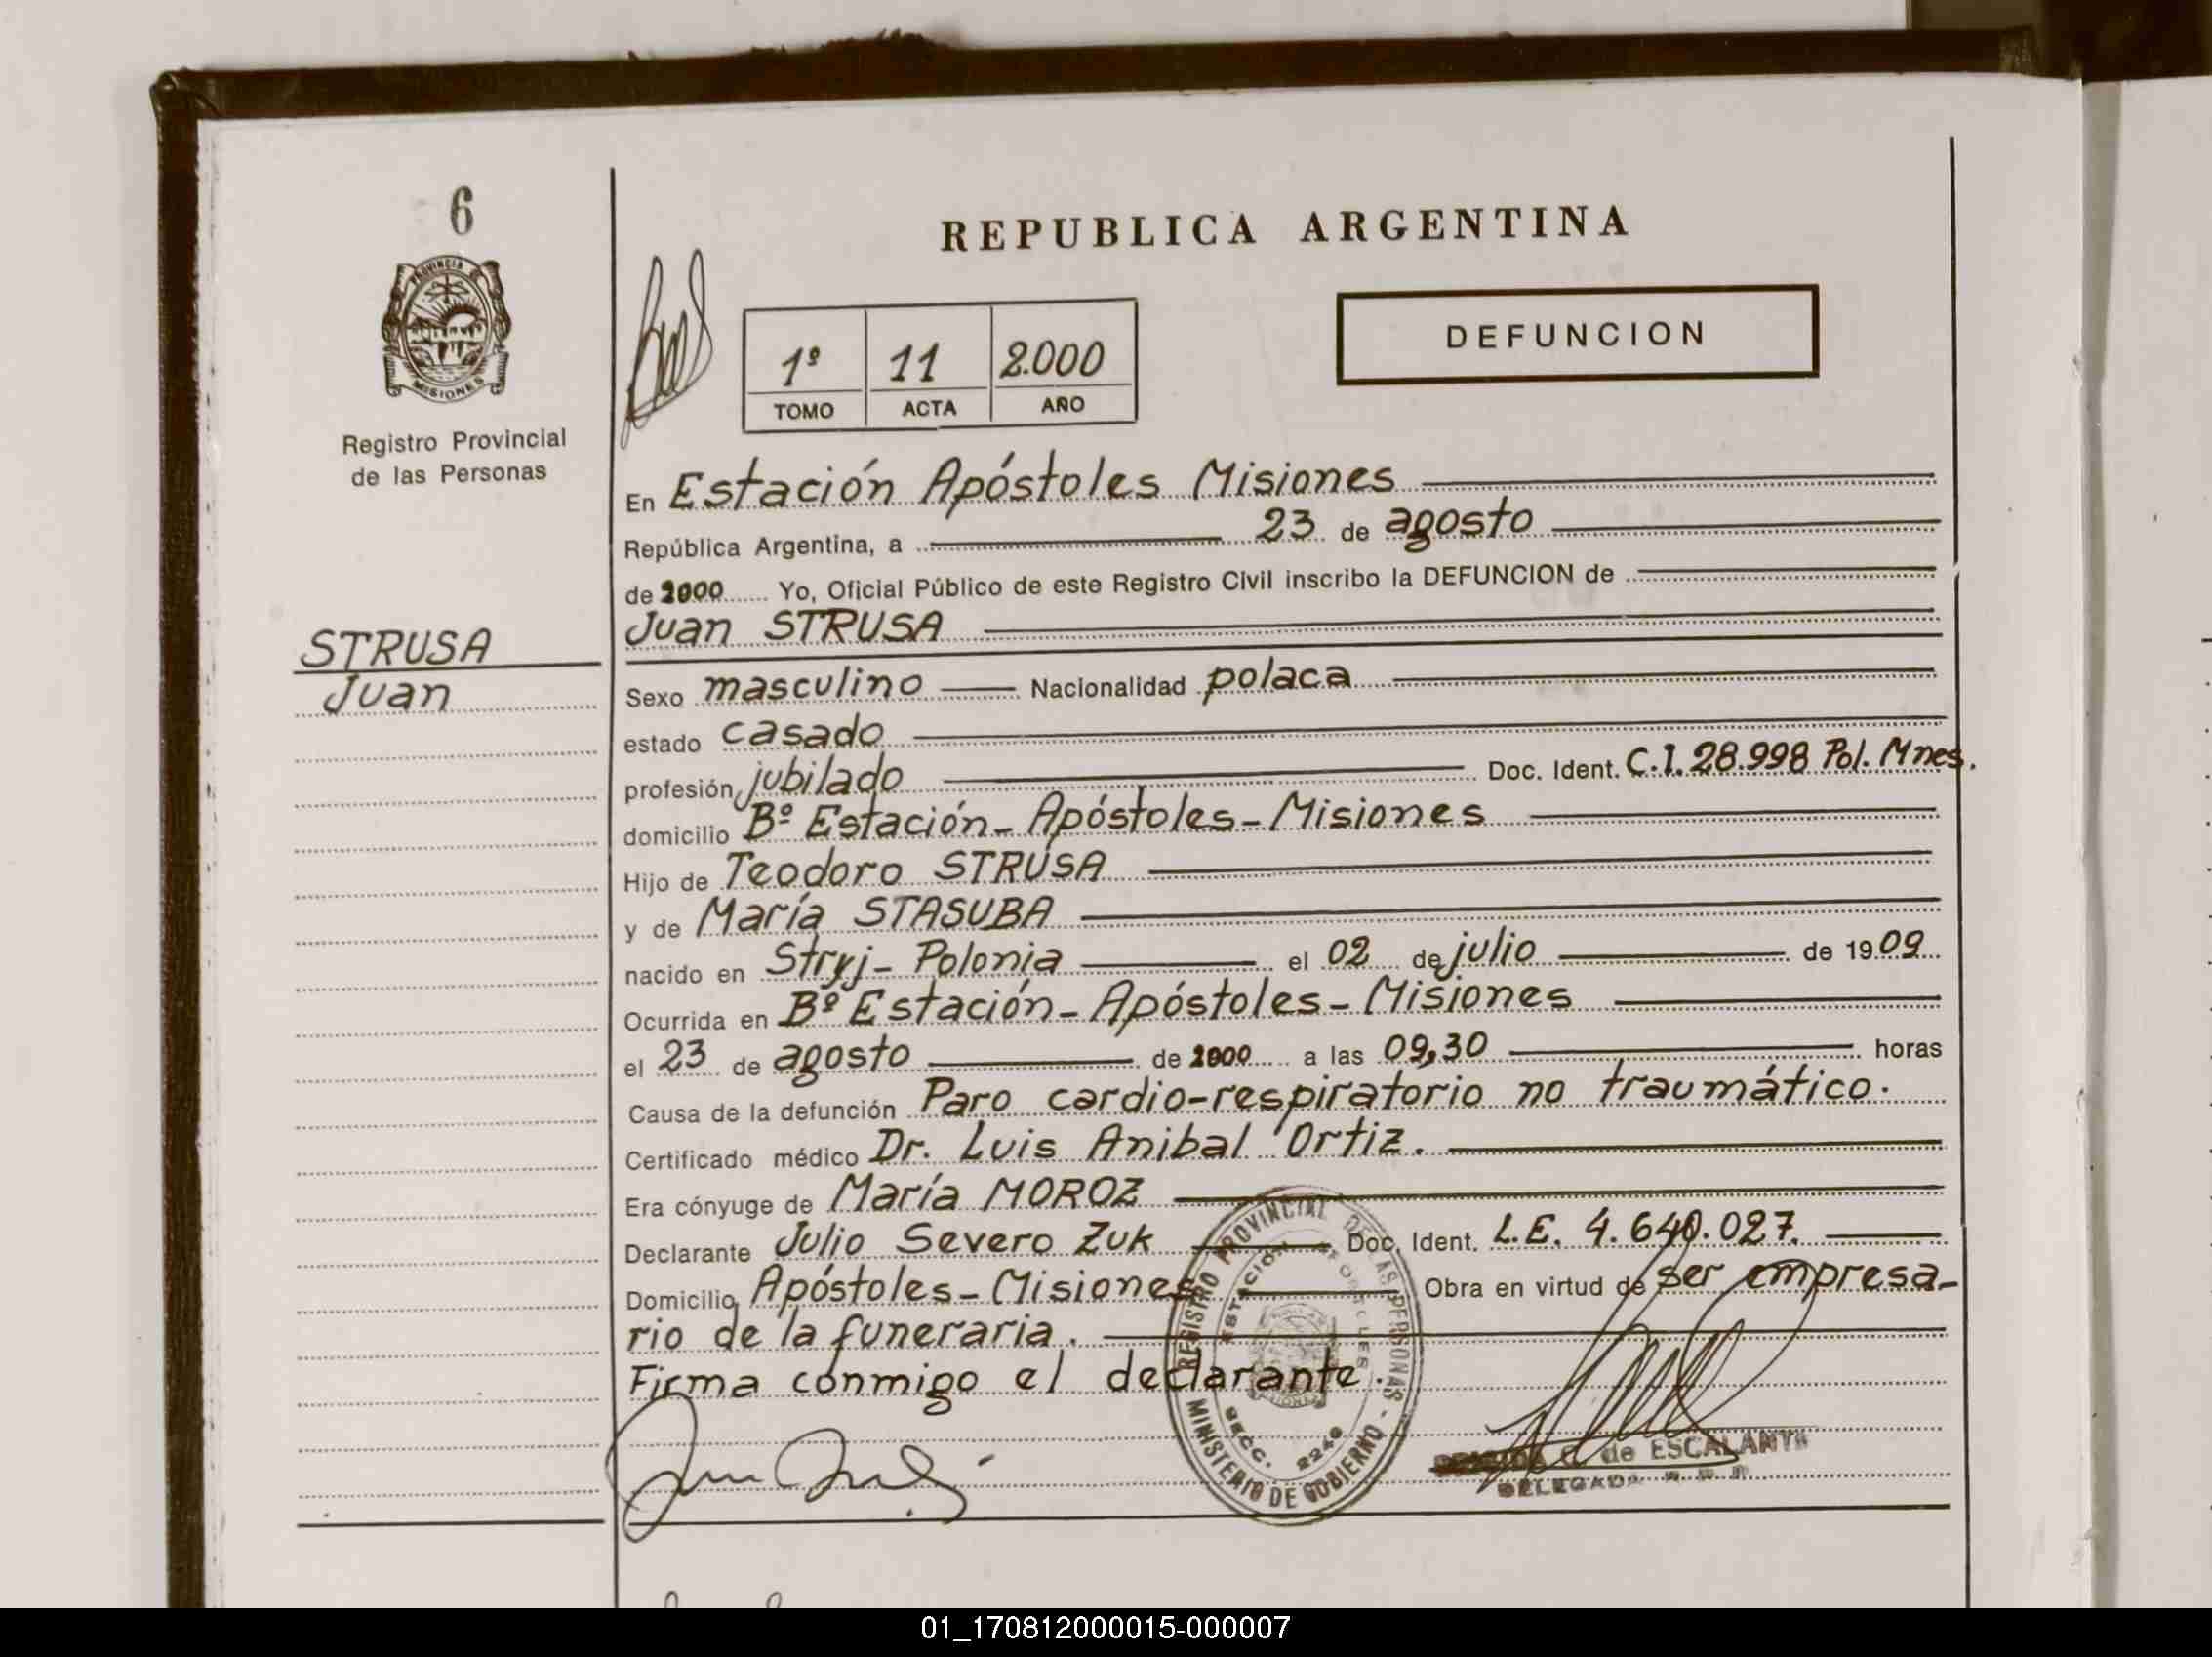 6
REPUBLICA ARGENTINA
PROVINCIA
MISIONES
Registro Provincial
de las Personas
1º 11 2.000
TOMO ACTA AÑO
DEFUNCION
En Estación Apóstoles Misiones
República Argentina, a 23 de agosto
de 2000 Yo, Oficial Público de este Registro Civil inscribo la DEFUNCION de
STRUSA
Juan
Juan STRUSA
Sexo masculino Nacionalidad polaca
estado casado
profesión jubilado Doc. Ident. C.I. 28.998 Pol. Mnes.
domicilio Bº Estación - Apóstoles - Misiones
Hijo de Teodoro STRUSA
y de María STASUBA
nacido en Stryj - Polonia el 02 de julio de 1909
Ocurrida en Bº Estación - Apóstoles - Misiones
el 23 de agosto de 2000 a las 09,30 horas
Causa de la defunción Paro cardio-respiratorio no traumático.
Certificado médico Dr. Luis Anibal Ortiz.
Era cónyuge de María MOROZ
Declarante Julio Severo Zuk Doc. Ident. L.E. 4.640.027.
Domicilio Apóstoles - Misiones Obra en virtud de ser empresa-
rio de la funeraria.
Firma conmigo el declarante.
REGISTRO PROVINCIAL DE LAS PERSONAS - MINISTERIO DE GOBIERNO
ESTACION APOSTOLES
SECC. 2240
de ESCALANTE
DELEGADA
01_170812000015-000007